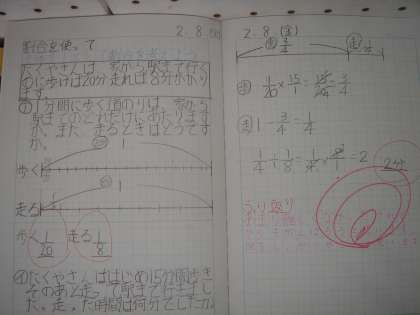 2.8.㈮
割合を使って
たくやさんは家から駅まで行く
のに歩けば20分走れば8分かかり
ます
① 1分間に歩く道のりは、家から
駅までのどれだけにあたります
か。また、走るときはどうです
か。
歩く 1
走る 1
歩く 1/20 走る 1/8
④ たくやさんははじめ15分間歩き
そのあと走って駅まで行きまし
た。走った時間は何分でしたか
2.8.(金)
歩 3/4 走 1/4
歩 1/20×15/1=15/20=3/4
走 1-3/4=1/4
1/4÷1/8=1/4×8/1=2 2分
ふり返り